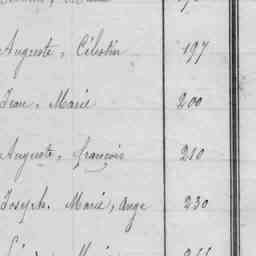 Auguste, Célestin 197
Jean, Marie 200
Auguste, françois 210
Joseph, Marie, ange 230